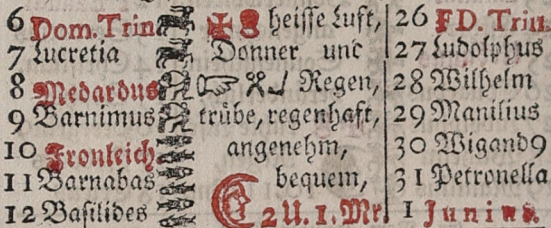 6 Dom. Trin heisse Luft, 26 FD. Trin.
7 Lucretia Donner und 27 Ludolphus
8 Medardus Regen, 28 Wilhelm
9 Barnimus trübe, regenhaft, 29 Manilius
10 Fronleich angenehm, 30 Wigand9
11 Barnabas bequem, 31 Petronella
12 Basilides 2 U. 1. Mr. 1 Junius.